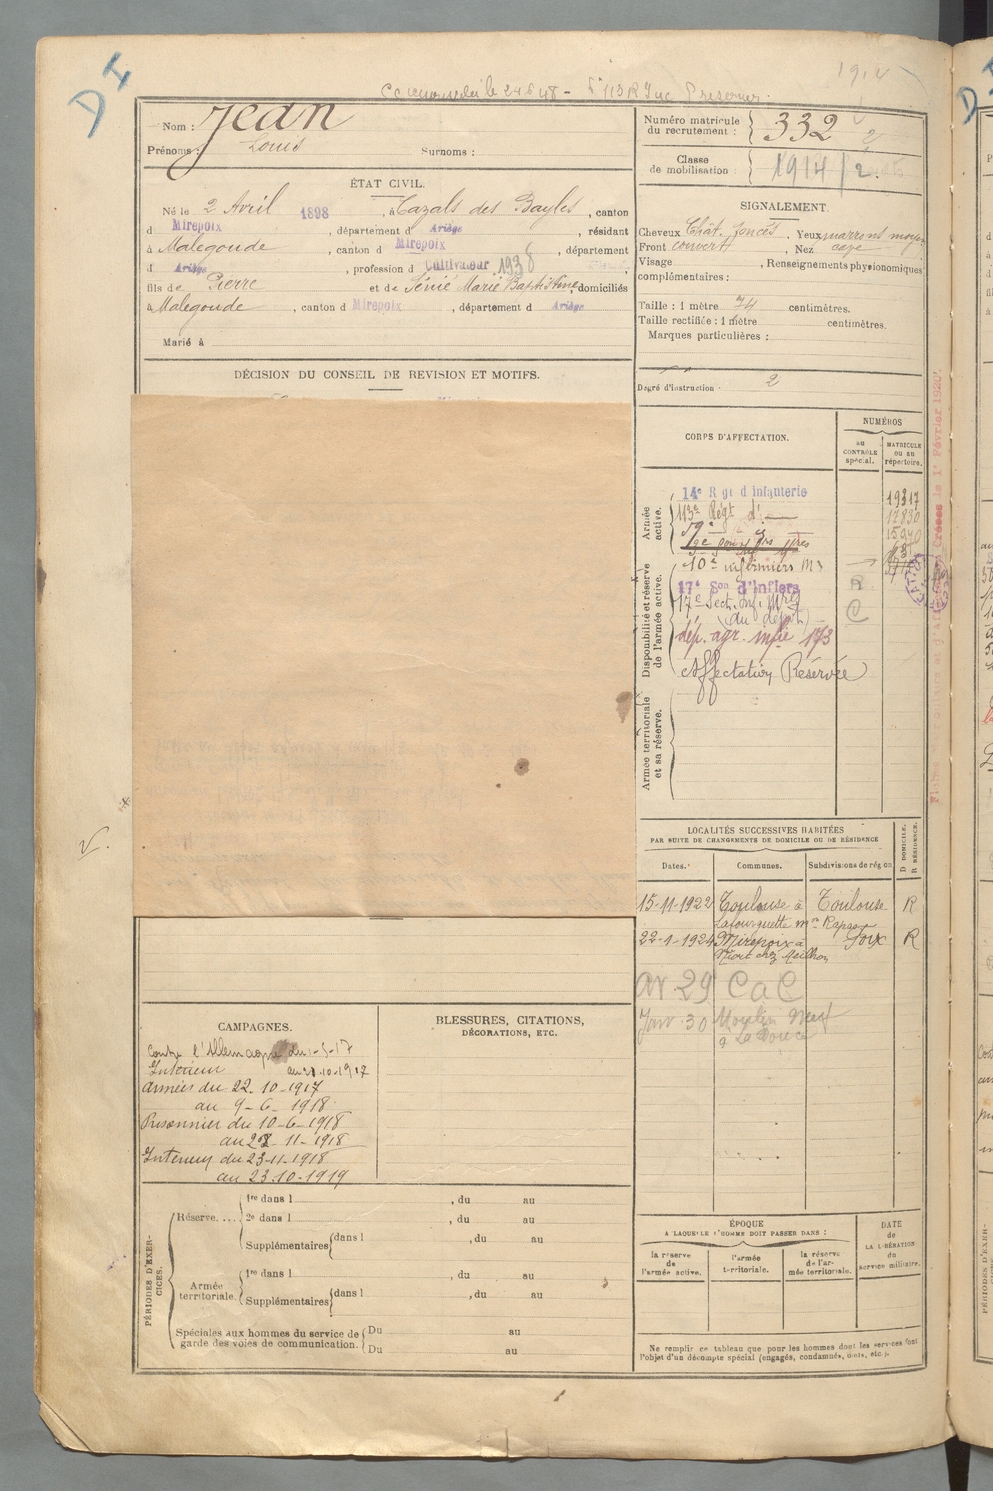 D I
Nom : Jean
Prénoms : Louis Surnoms :
Numéro matricule du recrutement : 332
Classe de mobilisation : 1914/2.
ÉTAT CIVIL.
Né le 2 Avril 1898, à Cazals des Bayles, canton
d Mirepoix, département d Ariège, résidant
à Malegoude, canton d Mirepoix, département
d Ariège, profession d Cultivateur 1938
fils de Pierre et de Sénié Marie Baptistine, domiciliés
à Malegoude, canton d Mirepoix, département d Ariège
Marié à
DÉCISION DU CONSEIL DE REVISION ET MOTIFS.
SIGNALEMENT.
Cheveux Chât. foncés. Yeux marrons moyen
Front couvert, Nez cave
Visage , Renseignements physionomiques
complémentaires :
Taille : 1 mètre 74 centimètres.
Taille rectifiée : 1 mètre centimètres.
Marques particulières :
Degré d'instruction. 2
CORPS D'AFFECTATION.
NUMÉROS
AU CONTRÔLE spécial.
MATRICULE OU AU répertoire.
Armée active.
14e Rgt d'infanterie
113e Régt d'
10e infirmiers
Disponibilité et réserve de l'armée active.
17e Son d'Infiers
17e Sect. Inf. Mres R
(du dépôt) C
dép. agr. infie 17/3
Affectation Réservée
Armée territoriale et sa réserve.
LOCALITÉS SUCCESSIVES HABITÉES
PAR SUITE DE CHANGEMENTS DE DOMICILE OU DE RÉSIDENCE
D DOMICILE.
R RÉSIDENCE.
Dates. Communes. Subdivisions de région
15-11-1922 Toulouse à Toulouse R
Lafourguette
22-1-1924 Mirepoix à Foix R
Niort chez
av 29 CaC
Janv. 30 Moulin Neuf
à La Douce
CAMPAGNES.
Contre l'Allemagne du 1-5-17
Intérieur au 21.10.1917
Armées du 22.10-1917
au 9-6-1918
Prisonnier du 10-6-1918
au 22-11-1918
Intérieur du 23-11-1918
au 23.10.1919
BLESSURES, CITATIONS,
DÉCORATIONS, ETC.
PÉRIODES D'EXERCICES.
Réserve....
1re dans l , du au
2e dans l , du au
Supplémentaires dans l , du au
Armée territoriale.
1re dans l , du au
Supplémentaires dans l , du au
Spéciales aux hommes du service de garde des voies de communication.
Du au
Du au
ÉPOQUE
A LAQUELLE L'HOMME DOIT PASSER DANS :
la réserve de l'armée active.
l'armée territoriale.
la réserve de l'armée territoriale.
DATE de LA LIBÉRATION du service militaire.
Ne remplir ce tableau que pour les hommes dont les services font
l'objet d'un décompte spécial (engagés, condamnés, omis, etc.).